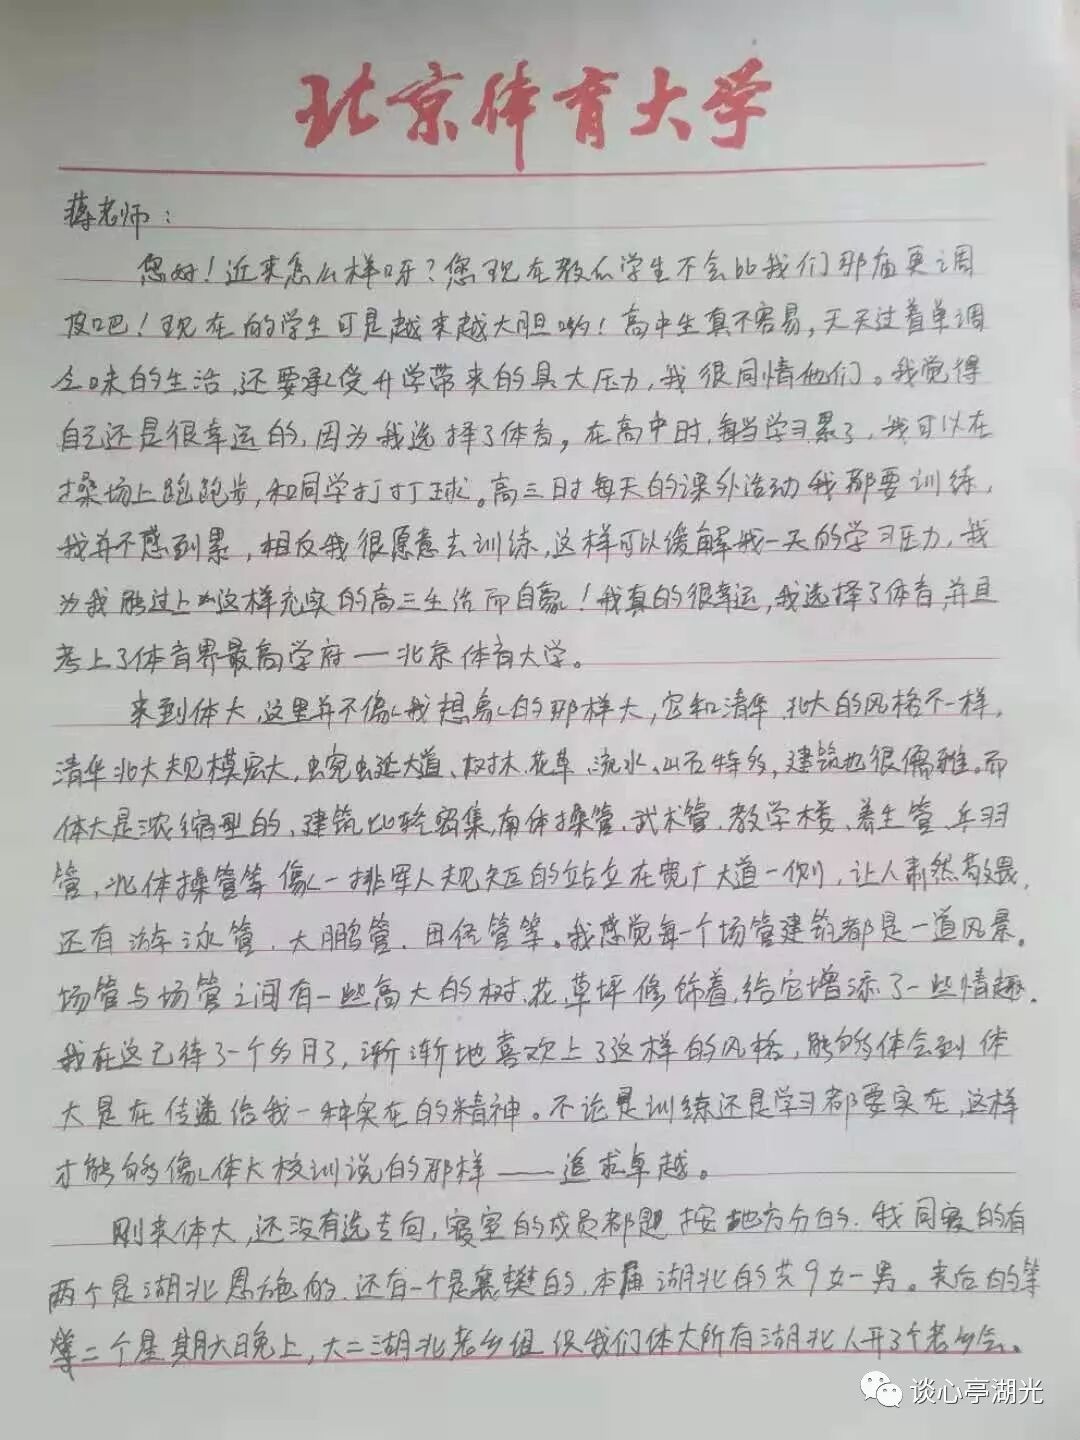 北京体育大学
蒋老师：
您好！近来怎么样呀？您现在教的学生不会比我们那届更调
皮吧！现在的学生可是越来越大胆哟！高中生真不容易，天天过着单调
乏味的生活，还要承受升学带来的具大压力，我很同情他们。我觉得
自己还是很幸运的，因为我选择了体育。在高中时，每当学习累了，我可以在
操场上跑跑步，和同学打打球。高三时每天的课外活动我都要训练，
我并不感到累，相反我很愿意去训练，这样可以缓解我一天的学习压力，我
为我能过上这样充实的高三生活而自豪！我真的很幸运，我选择了体育，并且
考上了体育界最高学府—北京体育大学。
来到体大，这里并不像我想象的那样大，它和清华、北大的风格不一样，
清华北大规模宏大，蜿蜒大道、树林、花草、流水、山石特多，建筑也很儒雅。而
体大是浓缩型的，建筑比较密集，南体操管、武术管、教学楼、养生管、乒羽
管，北体操管等像一排军人规矩的站立在宽广大道一侧，让人肃然敬畏，
还有游泳管、大鹏管、田径管等。我感觉每一个场管建筑都是一道风景。
场管与场管之间有一些高大的树、花、草坪修饰着，给它增添了一些情趣。
我在这已待了一个多月了，渐渐地喜欢上了这样的风格，能够体会到体
大是在传递给我一种实在的精神。不论是训练还是学习都要实在，这样
才能够像体大校训说的那样——追求卓越。
刚来体大，还没有选专向，寝室的成员都是按地方分的，我同寝的有
两个是湖北恩施的，还有一个是襄樊的，本届湖北的共9女一男。来后的第
二个星期六日晚上，大二湖北老乡组织我们体大所有湖北人开了个老乡会。
谈心亭湖光